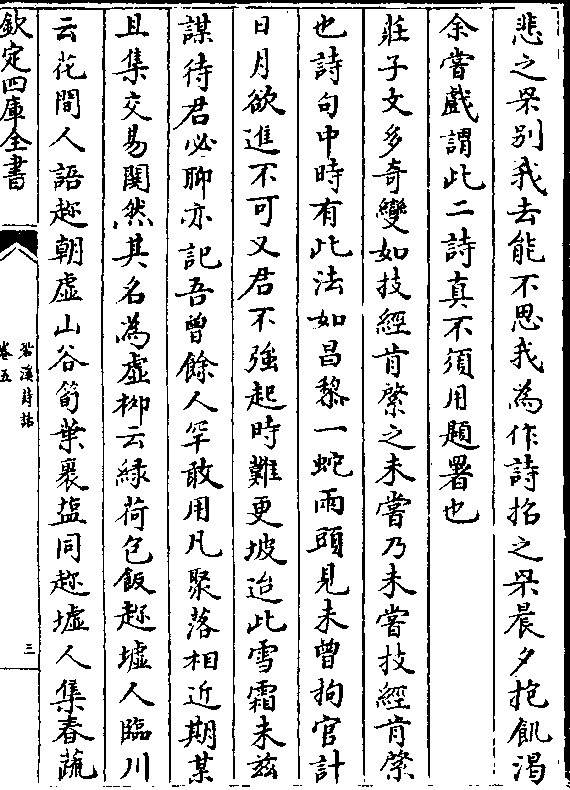 悲之杲别我去能不思我為作詩招之杲晨夕抱飢渴
余嘗戲謂此二詩真不須用題署也
莊子文多奇變如技經肯綮之未嘗乃未嘗技經肯綮
也詩句中時有此法如昌黎一蛇兩頭見未曾拘官計
日月欲進不可又君不強起時難更坡迨此雪霜未茲
謀待君必聊亦記吾曾餘人罕敢用凡聚落相近期某
且集交易閧然其名為虚柳云緑荷包飯趂墟人臨川
云花間人語趂朝虚山谷筍葉裹塩同趂墟人集春蔬
欽定四庫全書
䂬溪詩話
卷五
三